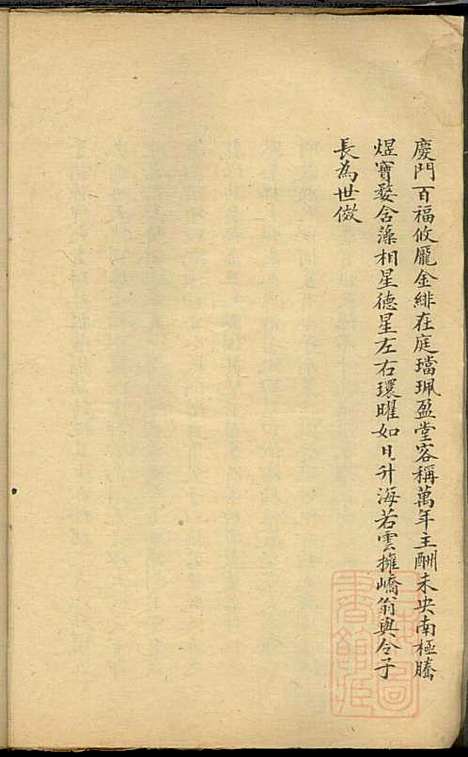 慶門百福攸龐金緋在庭璫珮盈堂客稱萬年主酬未央南極騰
煜寶婺含藻相星德星左右環曜如日升海若雲擁嶠翁與令子
長為世傚